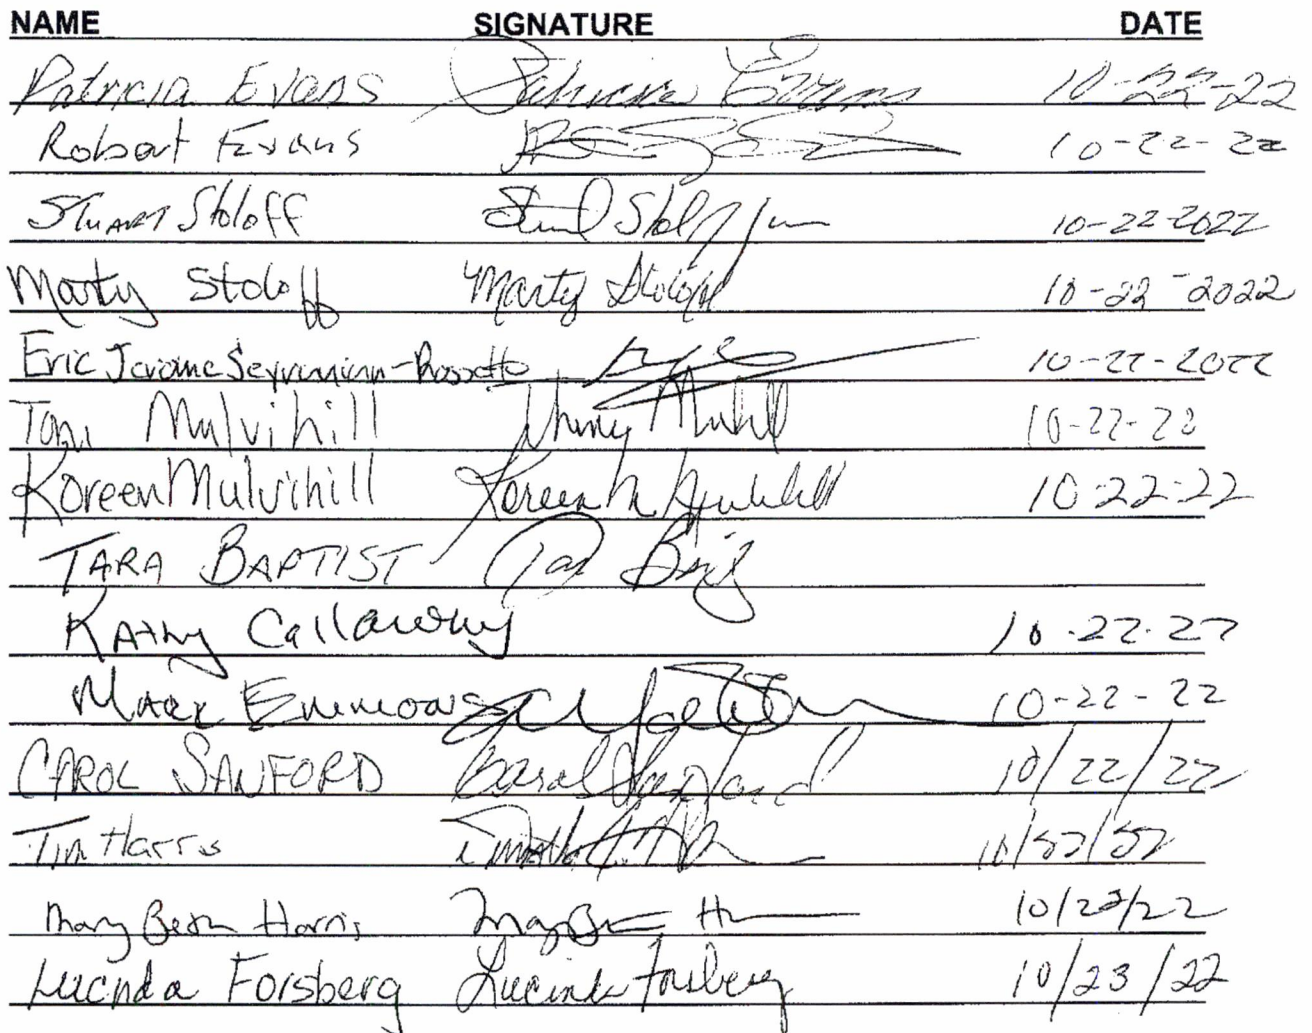 NAME SIGNATURE DATE
Patricia Evans Patricia Evans 10-22-22
Robert Evans 10-22-22
Stuart Stoloff 10-22-2022
Marty Stoloff Marty Stoloff 10-22-2022
Eric Jerome 10-22-2022
Mulvihill 10-22-22
Koreen Mulvihill Koreen M Mulvihill 10-22-22
TARA BAPTIST
KATHY Callaway 10.22.22
MARK Emmons 10-22-22
CAROL SANFORD Carol Sanford 10/22/22
Tim Harris
Mary Beth Harris 10/23/22
Lucinda Forsberg Lucinda Forsberg 10/23/22